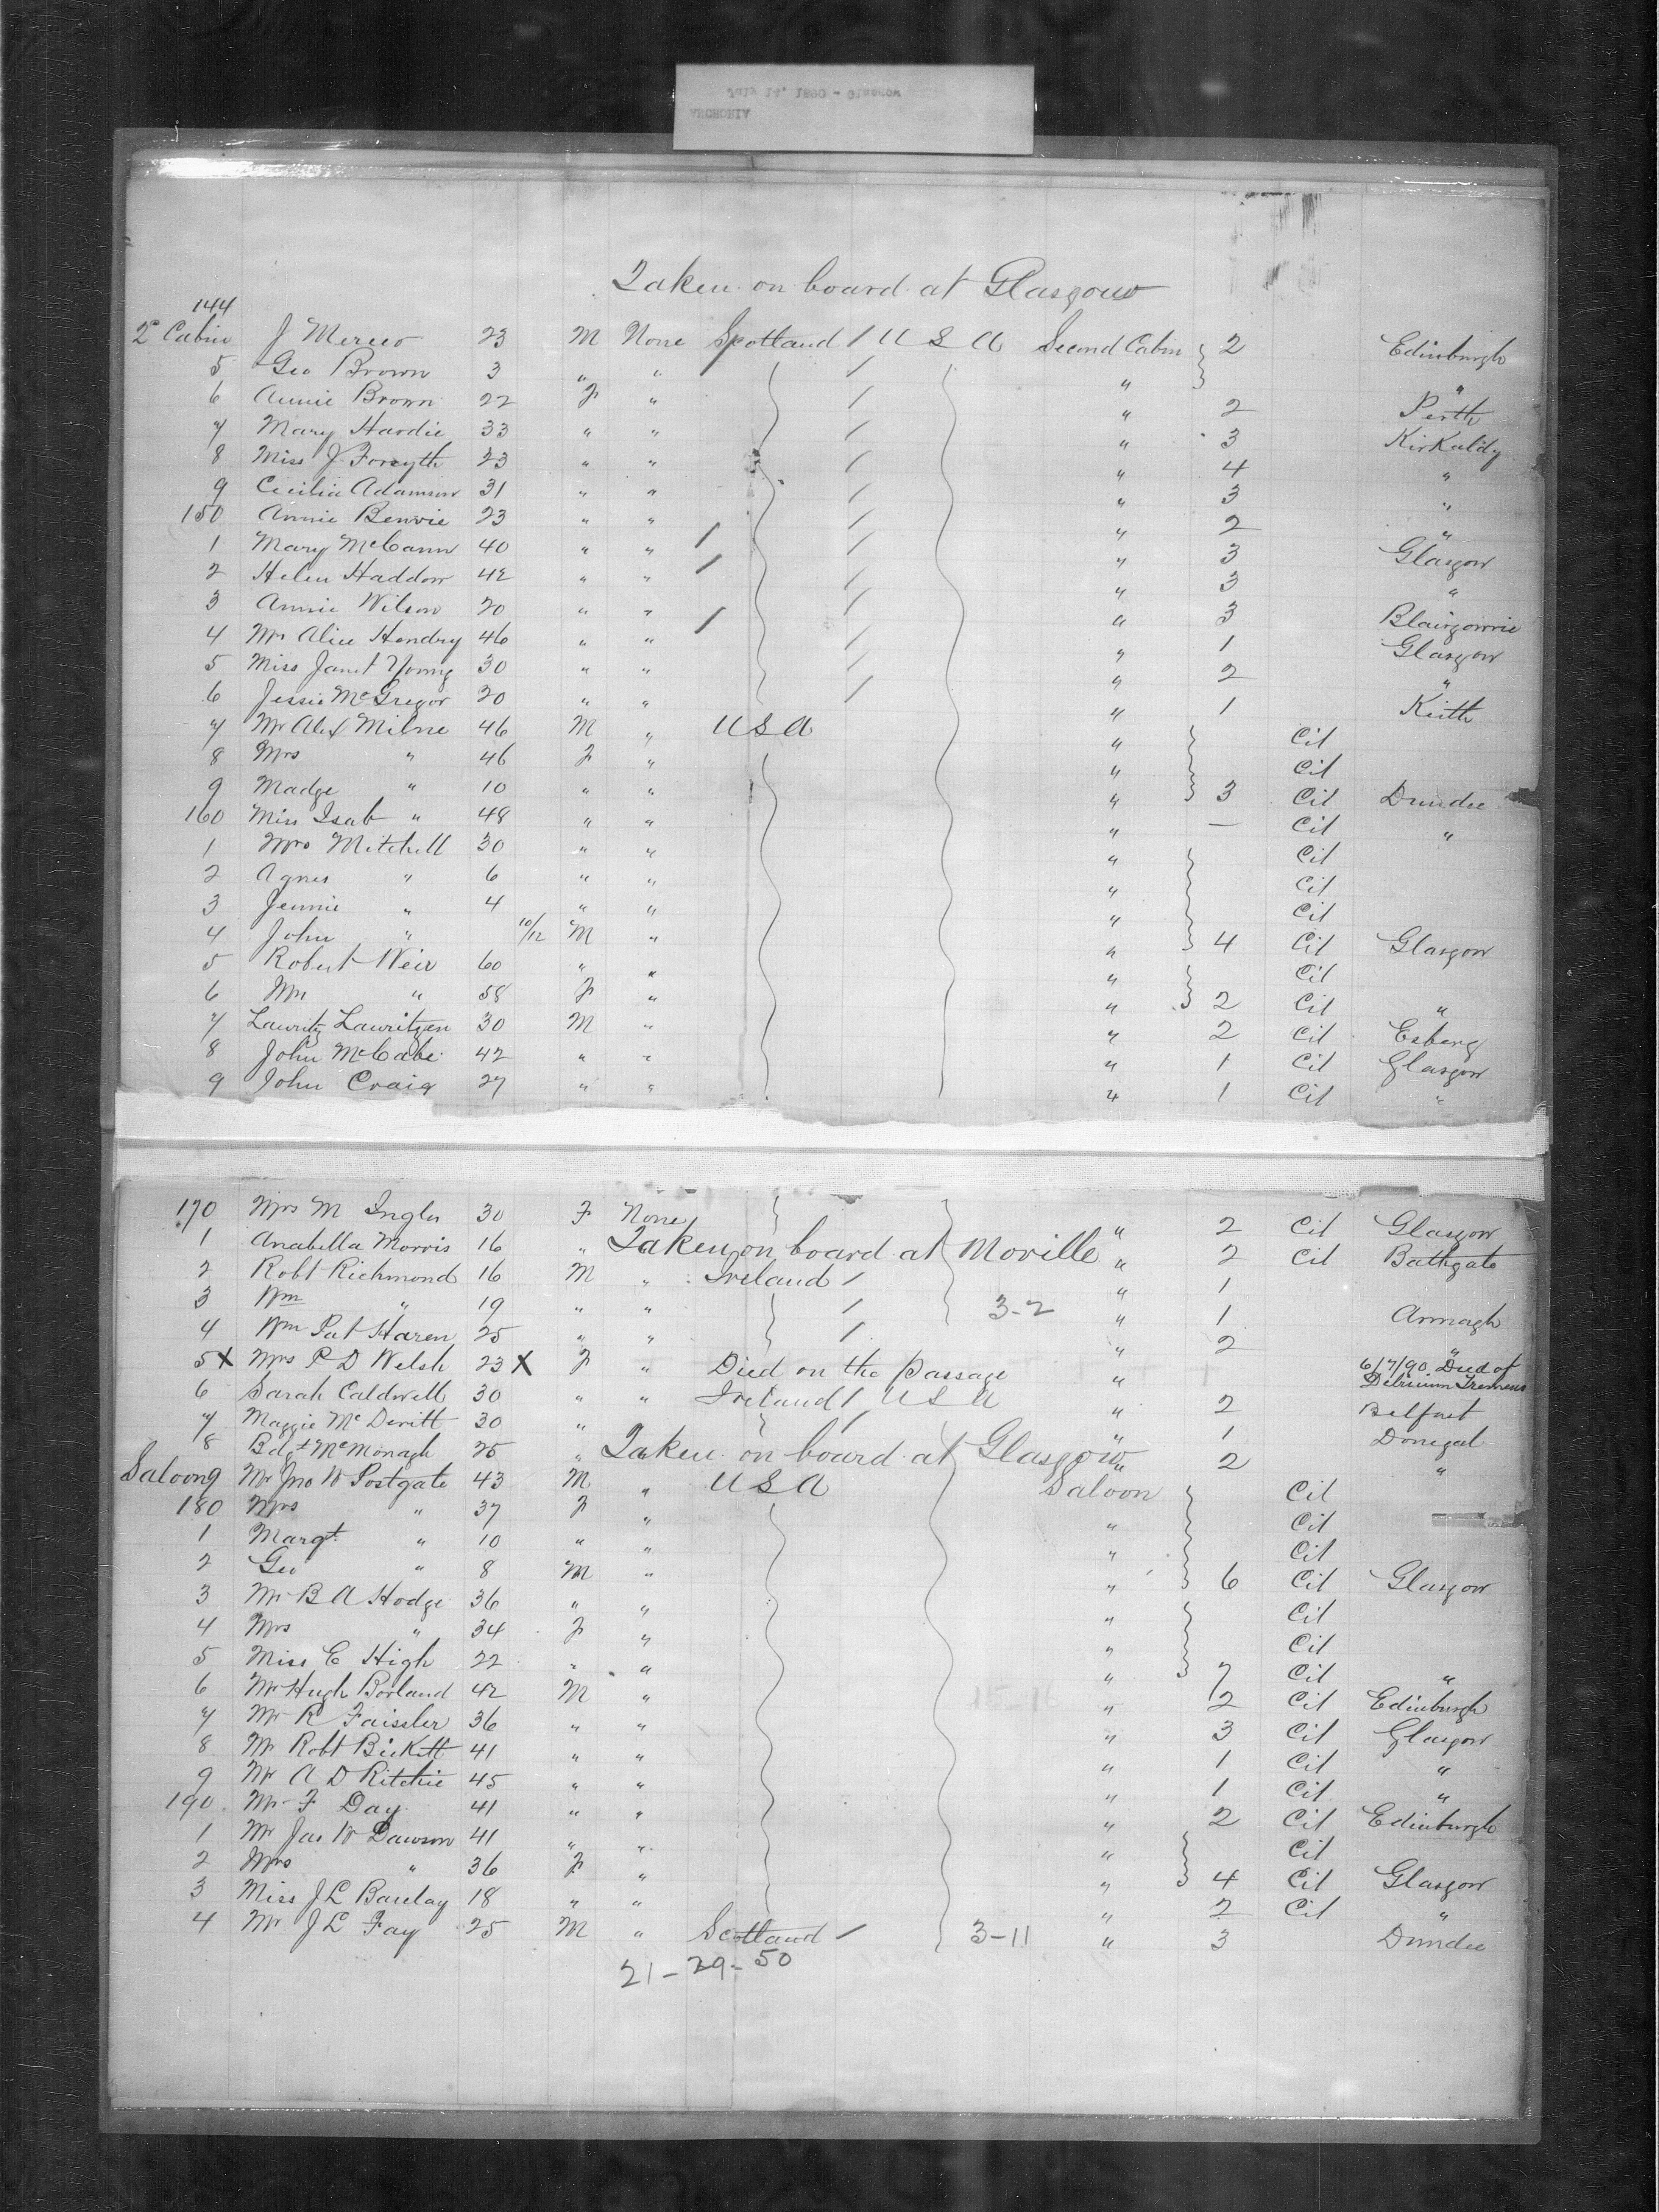 July 14, 1890 - Glasgow
Taken on board at Glasgow
144
2d Cabin J 23 M None Scotland / U S A Second Cabin } 2 Edinburgh
5 Geo Brown 3 " " / " "
6 Annie Brown 22 F " / " 2 Perth
7 Mary Hardie 33 " " / " 3 Kirkaldy
8 Miss J. Forsyth 23 " " / " 4 "
9 Cecilia Adamson 31 " " / " 3 "
150 Annie Benvie 23 " " / " 2 "
1 Mary McCann 40 " " / / " 3 Glasgow
2 Helen Haddow 42 " " / / " 3 "
3 Annie Wilson 20 " " / " 3 Blairgowrie
4 Mrs Alice Hendry 46 " " / / " 1 Glasgow
5 Miss Janet Young 30 " " / " 2 "
6 Jessie McGregor 20 " " / " 1 Keith
7 Mr Alex Milne 46 M " U S A " } Cit
8 Mrs " 46 F " " Cit
9 Madge " 10 " " " 3 Cit Dundee
160 Miss Isab " 48 " " " — Cit "
1 Mrs Mitchell 30 " " " } Cit
2 Agnes " 6 " " " Cit
3 Jennie " 4 " " " Cit
4 John " 10/12 M " " 4 Cit Glasgow
5 Robert Weir 60 " " " } Cit
6 Mrs " 58 F " " 2 Cit "
7 Lauritz Lauritzen 30 M " " 2 Cit Esberg
8 John McCabe 42 " " " 1 Cit Glasgow
9 John Craig 27 " " " 1 Cit "
170 Mrs M Inglis 30 F None " 2 Cit Glasgow
1 Anabella Morris 16 " " 2 Cit Bathgate
Taken on board at Moville
2 Robt Richmond 16 M " Ireland / " 1
3 Wm " 19 " " / 3-2 " 1 Armagh
4 Wm Pat Haren 25 " " / " 2 "
5 X Mrs P D Welsh 23 X F " Died on the passage " 6/7/90 Died of Delirium Tremens
6 Sarah Caldwell 30 " " Ireland / U S A " 2 Belfast
7 Maggie McDevitt 30 " / " 1 Donegal
8 Bdgt McMonagh 25 " " " 2 "
Taken on board at Glasgow
Saloon 9 Mr Jno W Postgate 43 M " U S A Saloon } Cit
180 Mrs " 37 F " " Cit
1 Margt " 10 " " " Cit
2 Geo " 8 M " " 6 Cit Glasgow
3 Mr B A Hodge 36 " " " } Cit
4 Mrs " 34 F " " Cit
5 Miss E High 22 " " " 7 Cit "
6 Mr Hugh Borland 42 M " " 2 Cit Edinburgh
7 Mr R Faissler 36 " " " 3 Cit Glasgow
8 Mr Robt Bickett 41 " " " 1 Cit "
9 Mr A D Ritchie 45 " " " 1 Cit "
190 Mr F Day 41 " " " 2 Cit Edinburgh
1 Mr Jas W Dawson 41 " " " } Cit
2 Mrs " 36 F " " 4 Cit Glasgow
3 Miss J L Barclay 18 " " " 2 Cit "
4 Mr J L Fay 25 M " Scotland / 3-11 " 3 Dundee
21-29-50